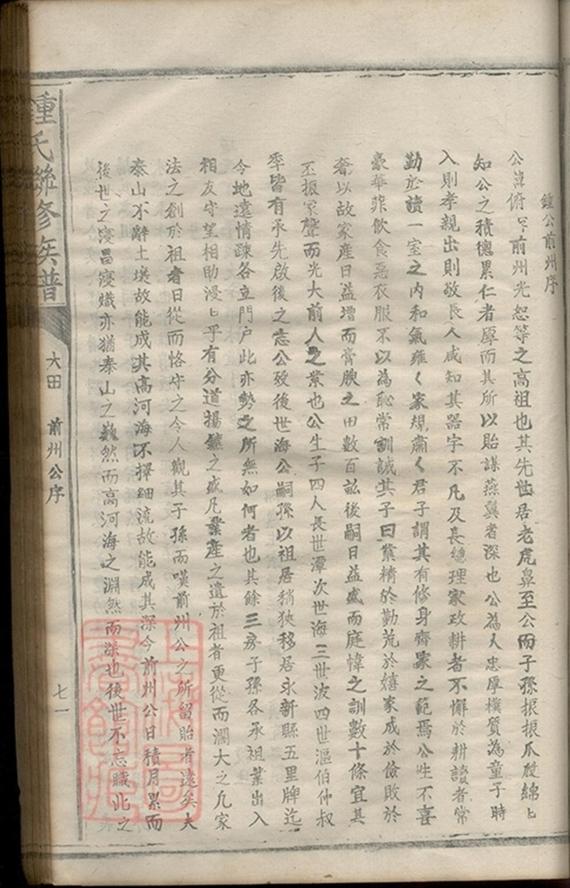 鍾公前州序
公諱俯字前州光恕等之高祖也其先世居老虎鼻至公而子孫振振瓜瓞綿〻
知公之積德累仁者厚而其所以貽謀燕翼者深也公為人忠厚樸質為童子時
入則孝親出則敬長人咸知其器宇不凡及長總理家政耕者不懈於耕讀者常
勤於讀一室之內和氣雍〻家規肅〻君子謂其有修身齊家之範焉公生不喜
豪華菲飲食惡衣服不以為恥常訓誡其子曰業精於勤荒於嬉家成於儉敗於
奢以故家產日益增而膏腴之田數百畝後嗣日益盛而庭幃之訓數十條宜其
丕振家聲而光大前人之業也公生子四人長世潭次世海三世波四世漚伯仲叔
季皆有承先啟後之志公歿後世海公嗣孫以祖居稍狹移居永新縣五里牌迄
今地遠情疎各立門戶此亦勢之所無如何者也其餘三房子孫各承祖業出入
相友守望相助浸〻乎有分道揚鑣之盛凡業產之遺於祖者更從而濶大之凡家
法之創於祖者日從而恪守之今人觀其子孫而嘆前州公之所留貽者遠矣夫
泰山不辭土壤故能成其高河海不擇細流故能成其深今前州公日積月累而
後世之寖昌寖熾亦猶泰山之巍然而高河海之淵然而深也後世不忘職此之
鍾氏聯修族譜
大田 前州公序
七一